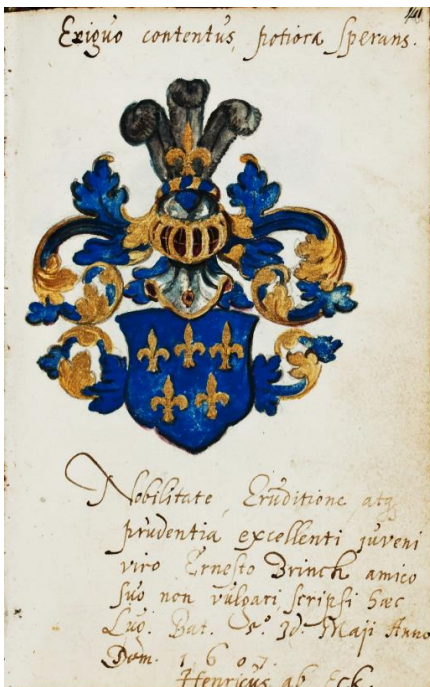 141
Exiguo contentus, potiora sperans.
Nobilitate, Eruditione atq
prudentia excellenti juveni
viro Ernesto Brinck amico
suo non vulgari scripsi hæc
Lug. Bat. 5º. Id. Maji Anno
Dom. 1607.
Henricus ab Eck.